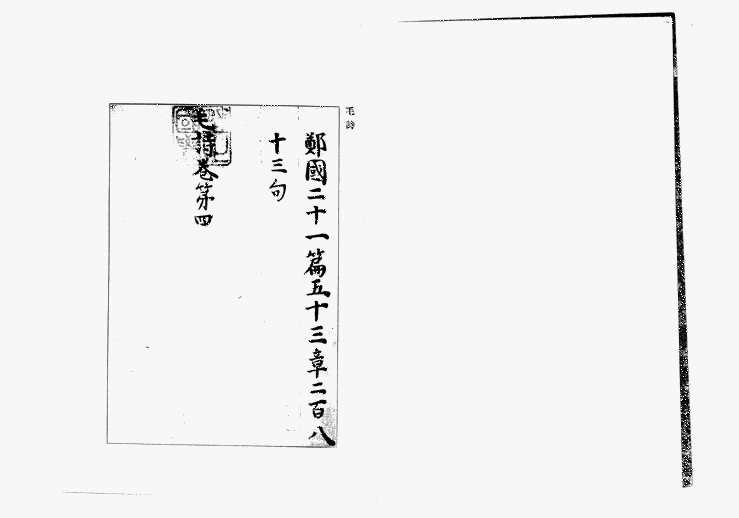 毛詩
鄭國二十一篇五十三章二百八
十三句
毛詩卷第四